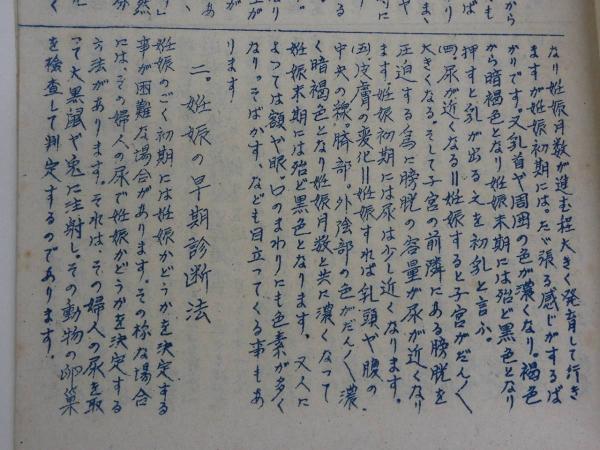 なり妊娠月数が進む程大きく発育して行き
ますが妊娠初期には。たゞ張る感じがするば
かりです。又乳首や周囲の色が濃くなり。褐色
から暗褐色となり妊娠末期には殆ど黒色となり
押すと乳が出る之を初乳と言ふ。
四、尿が近くなる=妊娠すると子宮がだん〳〵
大きくなる。そして子宮の前隣にある膀胱を
圧迫する為に膀胱の容量が尿が近くなり
ます妊娠初期には尿は少し近くなります。
五)皮膚の変化=妊娠すれば乳頭や腹の
中央の線。臍部。外陰部の色がだん〳〵濃
く暗褐色となり妊娠月数と共に濃くなって
妊娠末期には殆ど黒色となります。又人に
よっては額や眼口のまわりにも色素が多く
なり。そばかす、なども目立ってくる事もあ
ります
二.妊娠の早期診断法
妊娠のごく初期には妊娠かどうかを決定する
事が困難な場合があります。その様な場合
には、その婦人の尿で妊娠かどうかを決定する
方法があります。それは、その婦人の尿を取
って大黒鼠や兎に注射し。その動物の卵巣
を検査して判定するのであります.